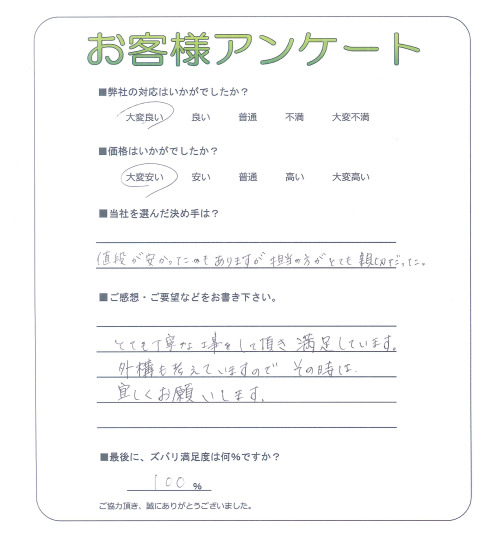 お客様アンケート
■弊社の対応はいかがでしたか？
大変良い 良い 普通 不満 大変不満
■価格はいかがでしたか？
大変安い 安い 普通 高い 大変高い
■当社を選んだ決め手は？
値段が安かったのもありますが担当の方がとても親切だった。
■ご感想・ご要望などをお書き下さい。
とても丁寧な工事をして頂き満足しています。
外構も考えていますので その時は
宜しくお願いします。
■最後に、ズバリ満足度は何%ですか？
100 %
ご協力頂き、誠にありがとうございました。